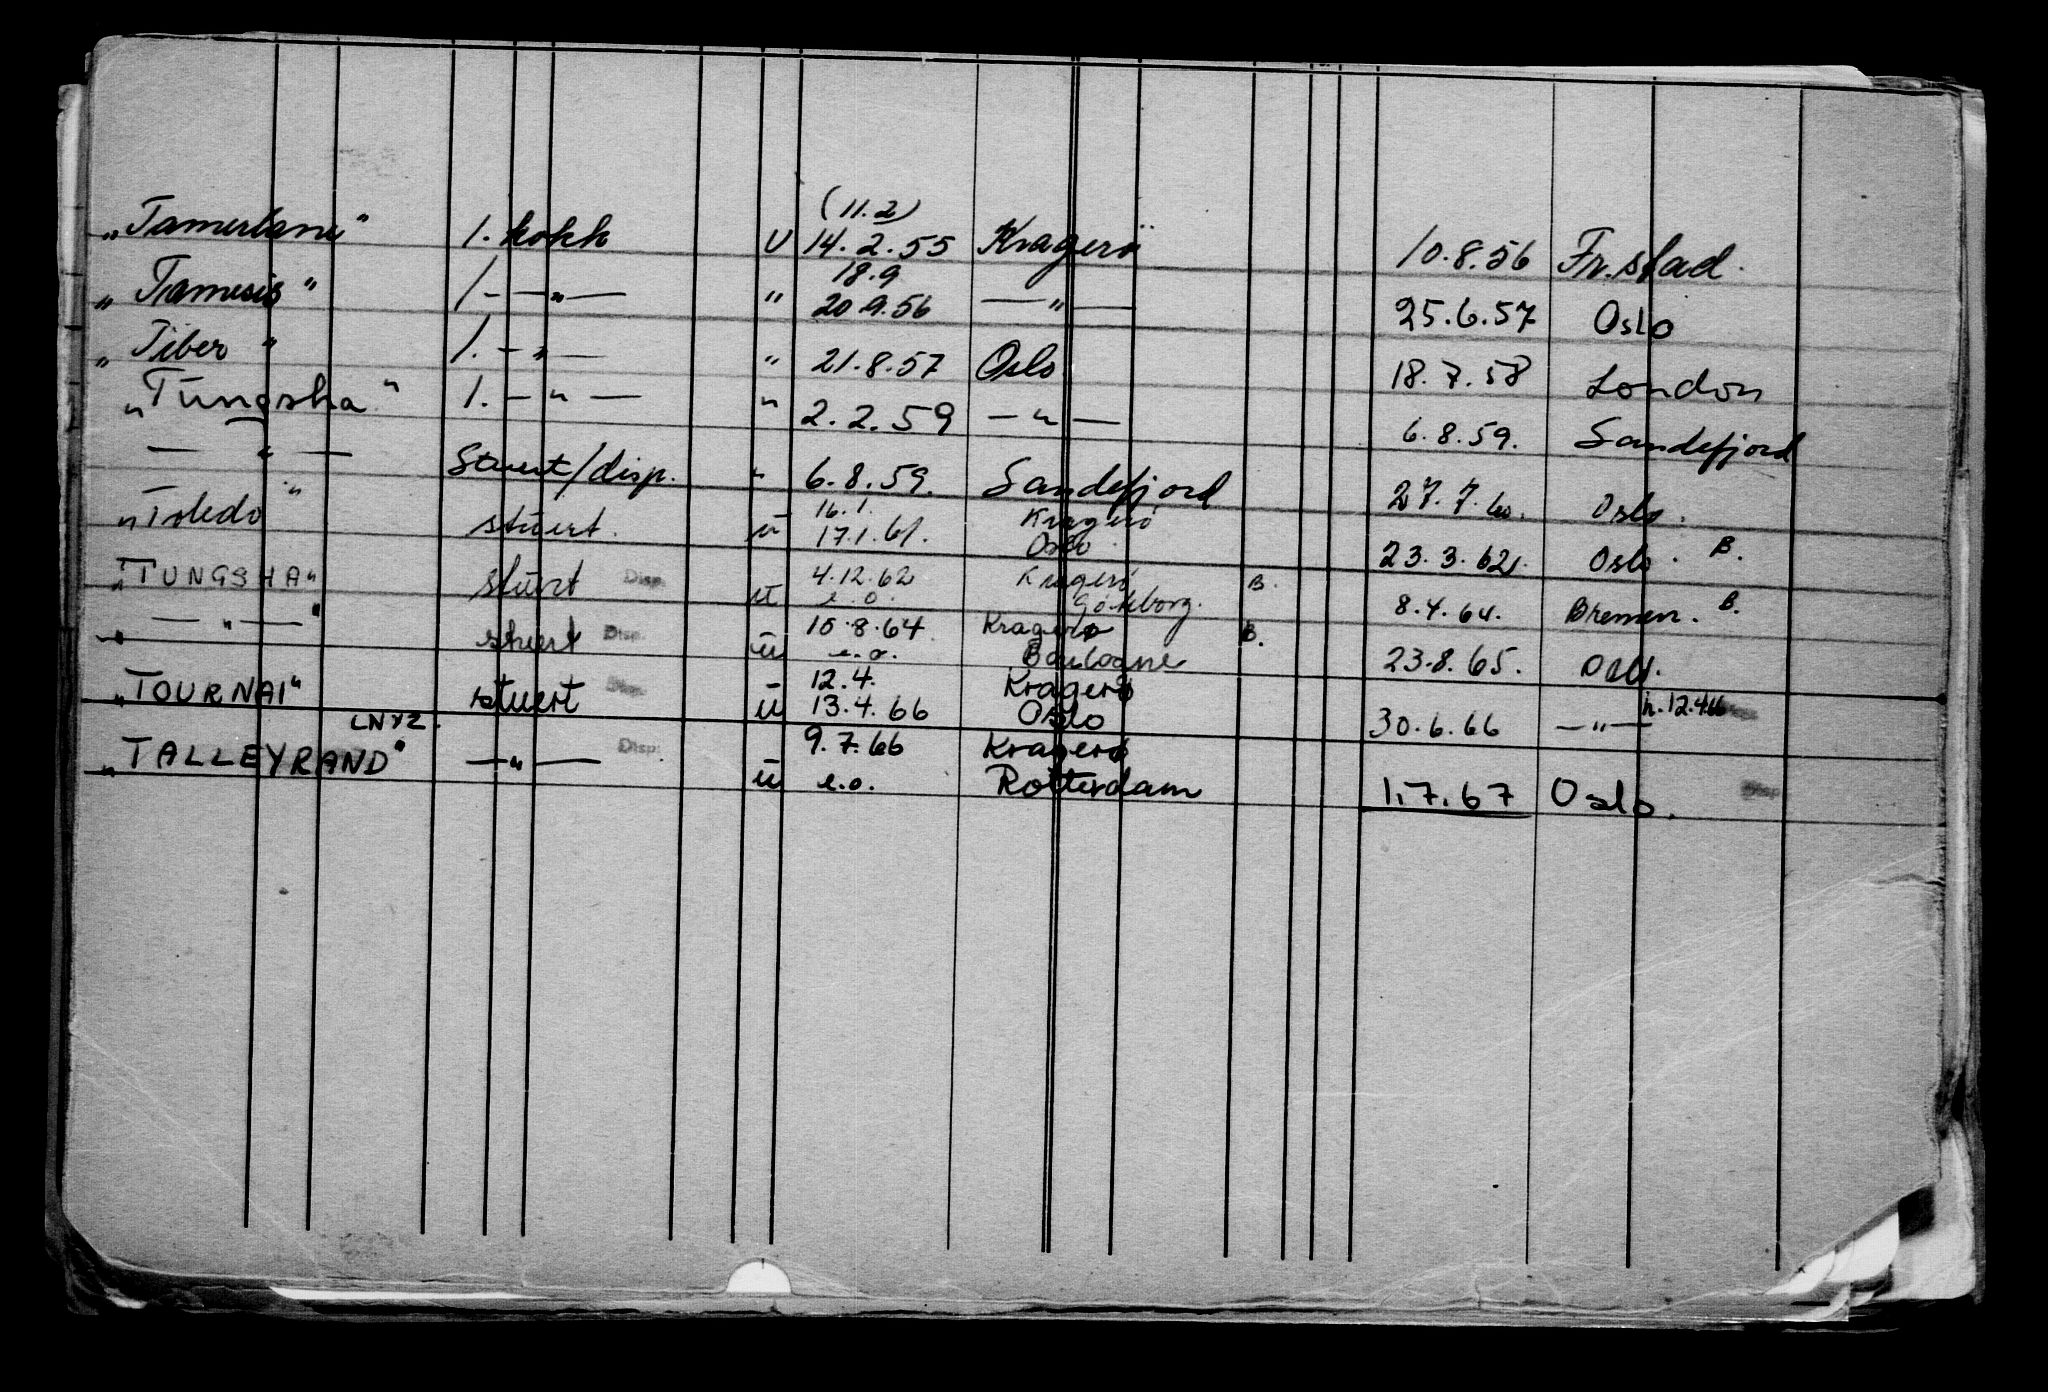 (11.2)
„Tamerlane" 1. kokk U 14.2.55 Kragerö 10.8.56 Fr.stad.
18.9
„Tamesis" 1. —„— " 20.9.56 —"— 25.6.57 Oslo
„Tiber" 1. —„— " 21.8.57 Oslo 18.7.58 London
„Tungsha" 1. —„— " 2.2.59 —„— 6.8.59. Sandefjord
—„— Stuert/disp. " 6.8.59. Sandefjord 27.7.60. Oslo.
16.1. Kragerö
„Toledo" stuert. u 17.1.61. Oslo 23.3.62. Oslo. B.
4.12.62 Kragerö B.
„TUNGSHA" stuert Disp. u e.o. Göteborg. 8.4.64. Bremen. B.
10.8.64 Kragerø B.
„—„—" stuert Disp. u e.o. Boulogne 23.8.65. Oslo.
12.4. Kragerø
„TOURNAI" stuert Disp. u 13.4.66 Oslo 30.6.66 —„— h.12.4.66
LNYZ. 9.7.66 Kragerø
„TALLEYRAND" —„— Disp. u e.o. Rotterdam 1.7.67 Oslo. Disp